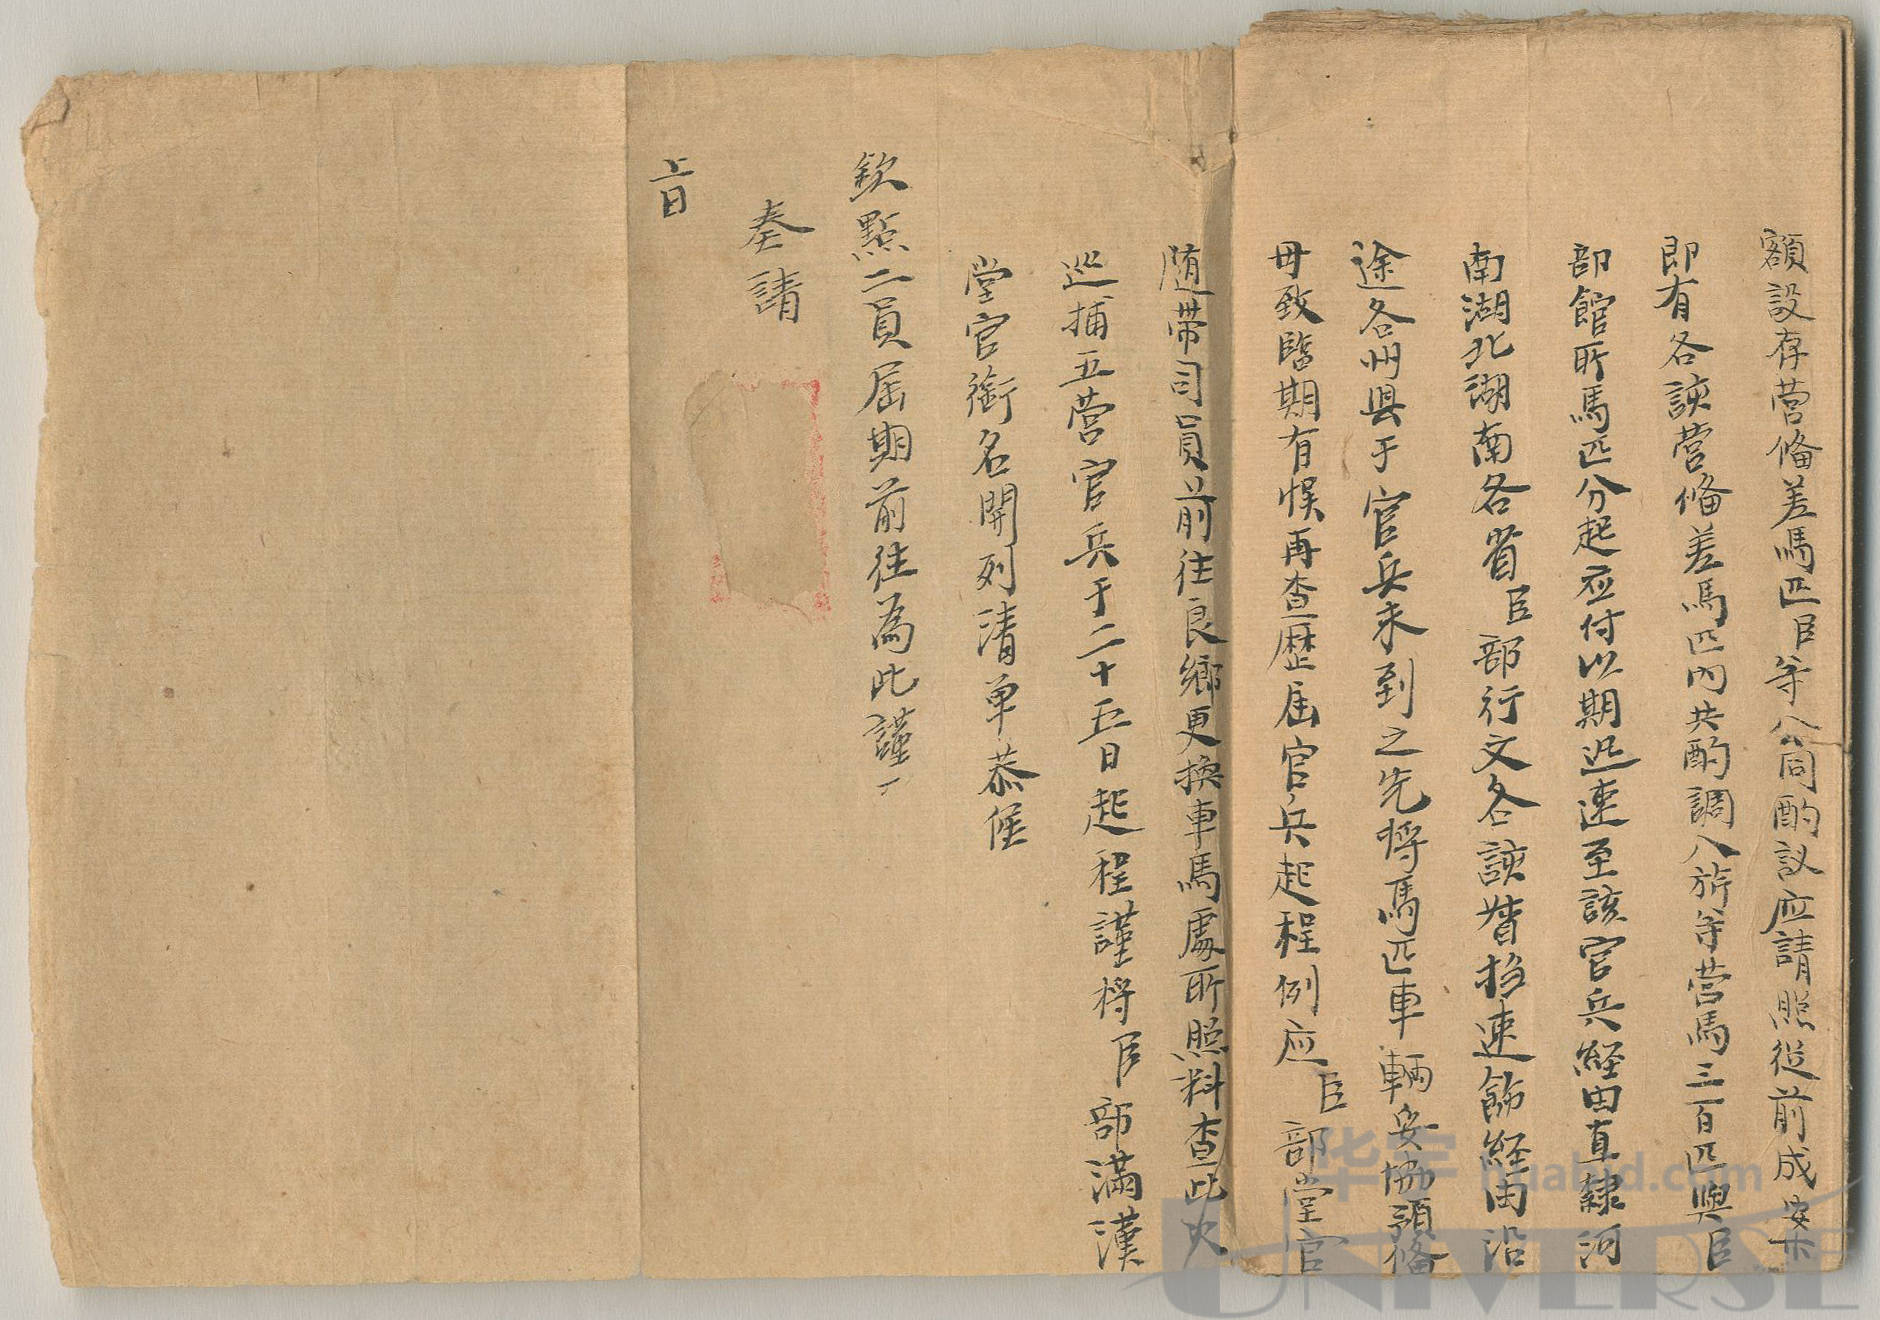 額設存营俻差馬匹臣等公同酌议应請照從前成案
即有各該营俻差馬匹內共酌調八旂等营馬三百匹與臣
部館所馬匹分起应付以期迅速至該官兵経由直隸河
南湖北湖南各省臣部行文各該督抚速飭経由沿
途各州县于官兵未到之先将馬匹車輌妥協預俻
毋致臨期有悮再查歷届官兵起程例应臣部堂官
随带司員前往良鄉更換車馬處所照料查此次
巡捕五营官兵于二十五日起程謹将臣部滿漢
堂官銜名開列清单恭候
欽點二員届期前往為此謹
奏請
旨
华宇 huabid.com
UNIVERSE